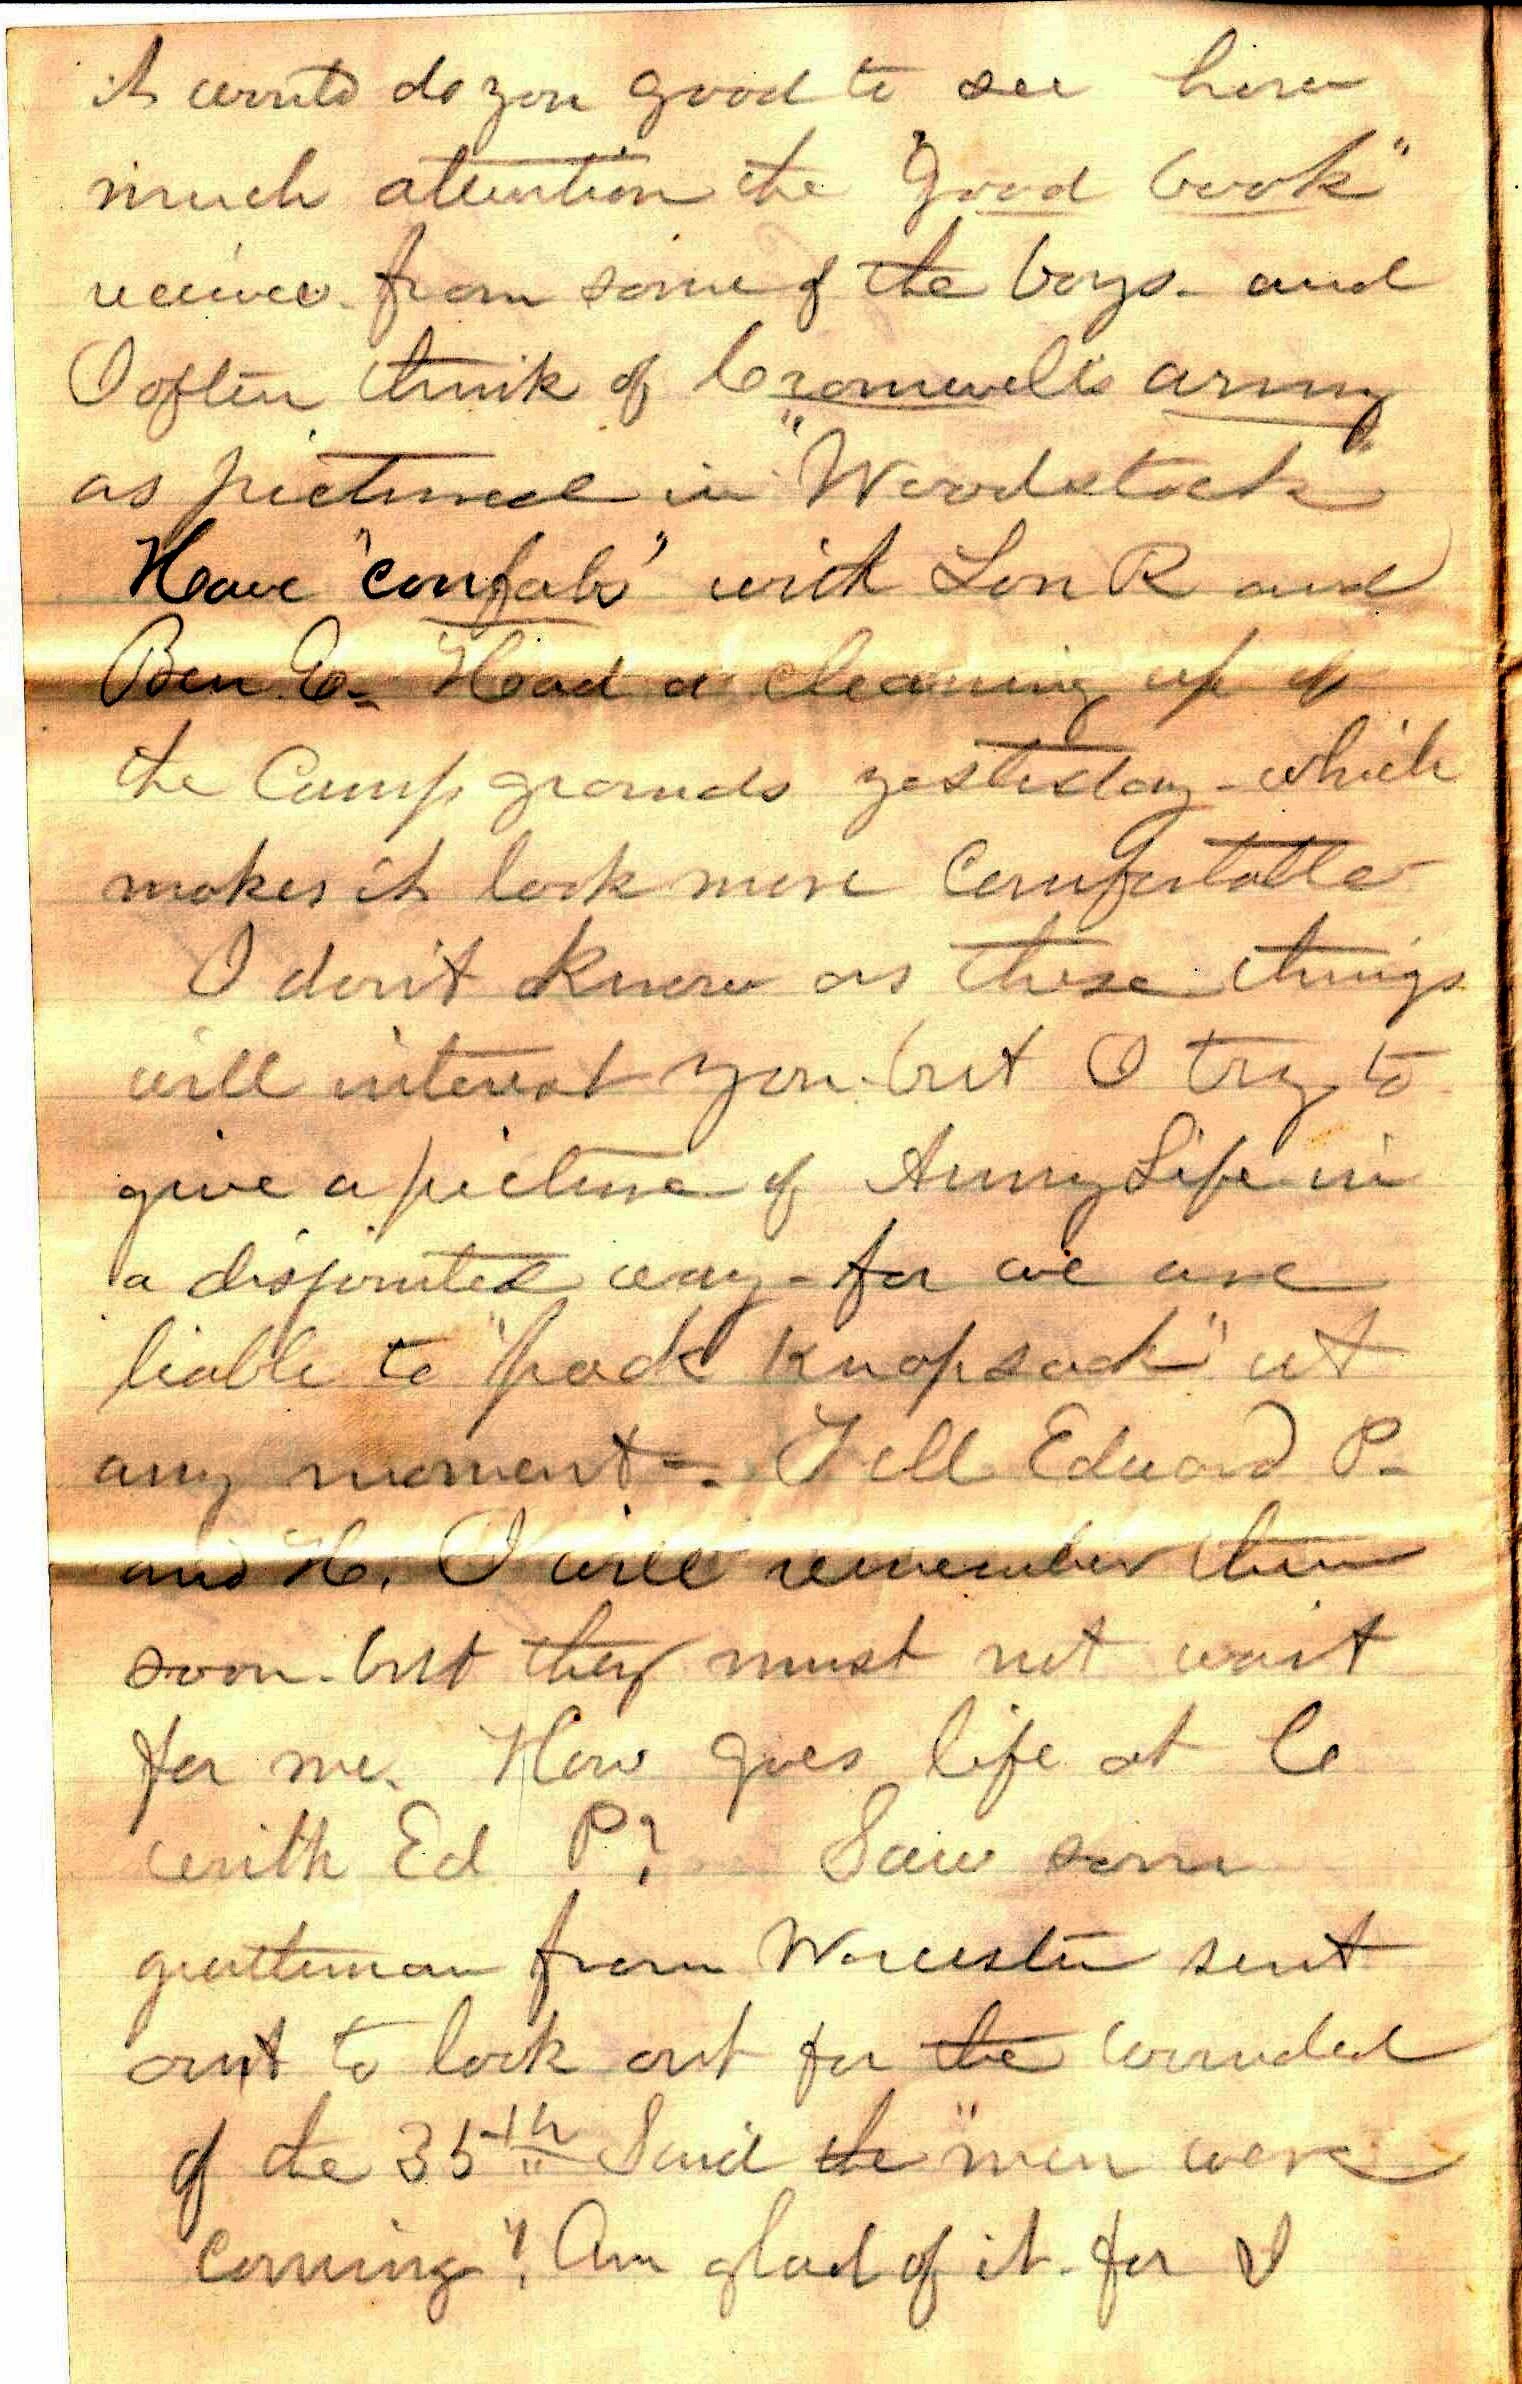 it would do you good to see how
much attention the "good book"
receives from some of the boys - and
I often think of Cromwell's army
as pictured in "Woodstock"
Have "confabs" with Lon R and
Ben E. Had a cleaning up of
the Camp grounds yesterday - which
makes it look more comfortable
I don't know as these things
will interest you but I try to
give a picture of Army Life in
a disjointed way - for we are
liable to "pack knapsack" at
any moment -. Tell Edward P.
and H. I will remember them
soon - but they must not wait
for me. How goes life at C
with Ed P? Saw some
gentleman from Worcester sent
out to look out for the wounded
of the 35th Said the "men were
coming"! Am glad of it - for I